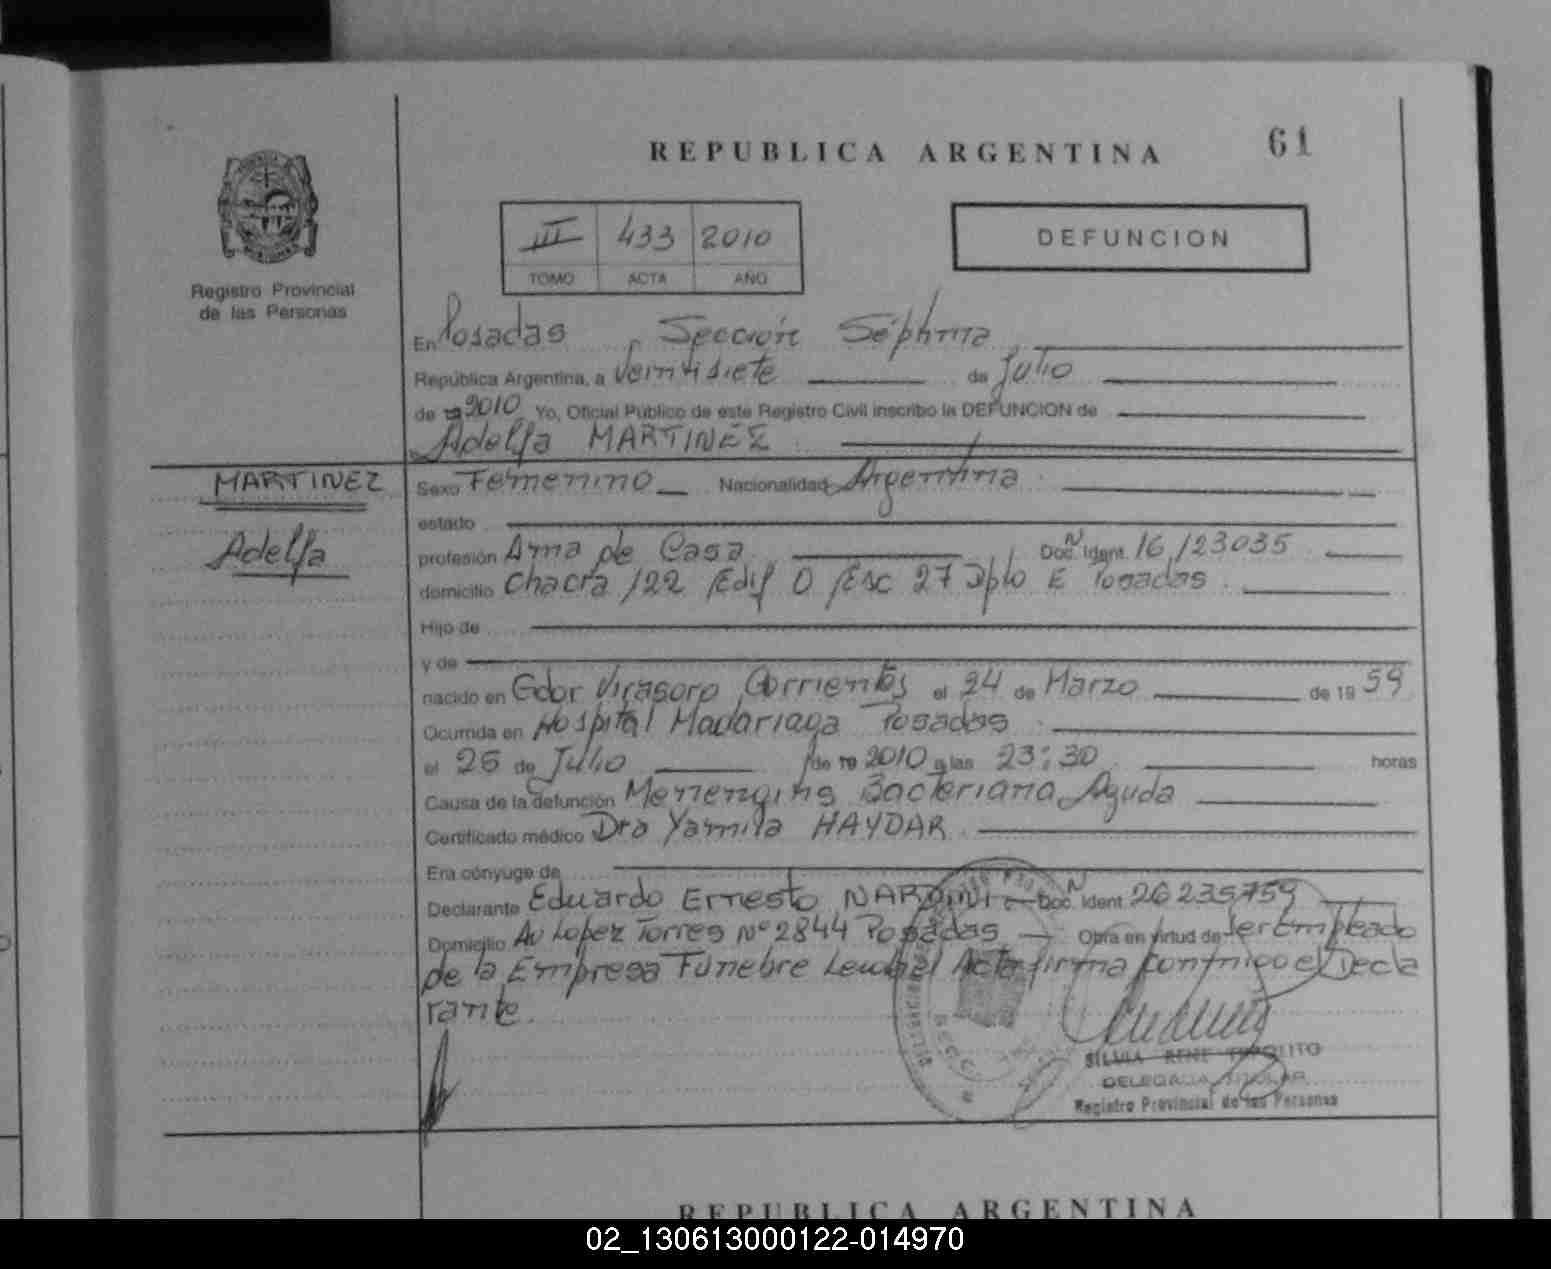 REPUBLICA ARGENTINA
61
III 433 2010
TOMO ACTA AÑO
DEFUNCION
Registro Provincial
de las Personas
En Posadas, Sección Séptima
República Argentina, a Veintisiete de Julio
de 19 2010 Yo, Oficial Público de este Registro Civil inscribo la DEFUNCION de
Adelfa MARTINEZ
MARTINEZ
Adelfa
Sexo Femenino Nacionalidad Argentina
estado
profesión Ama de Casa Doc. N Ident. 16.123035
domicilio Chacra 122 Edif O Esc 27 Dpto E Posadas
Hijo de
y de
nacido en Gdor Virasoro Corrientes el 24 de Marzo de 19 59
Ocurrida en Hospital Madariaga Posadas
el 25 de Julio de 19 2010 a las 23:30 horas
Causa de la defunción Menengitis Bacteriana Aguda
Certificado médico Dra Yamila HAYDAR
Era cónyuge de
Declarante Eduardo Ernesto Doc. N Ident. 26235759
Domicilio Av Lopez Torres Nº 2844 Posadas Obra en virtud de ser Empleado
de la Empresa Fúnebre Acta firma conmigo el Decla
rante.
SILVIA RENE
DELEGADA TITULAR
Registro Provincial de las Personas
REPUBLICA ARGENTINA
02_130613000122-014970